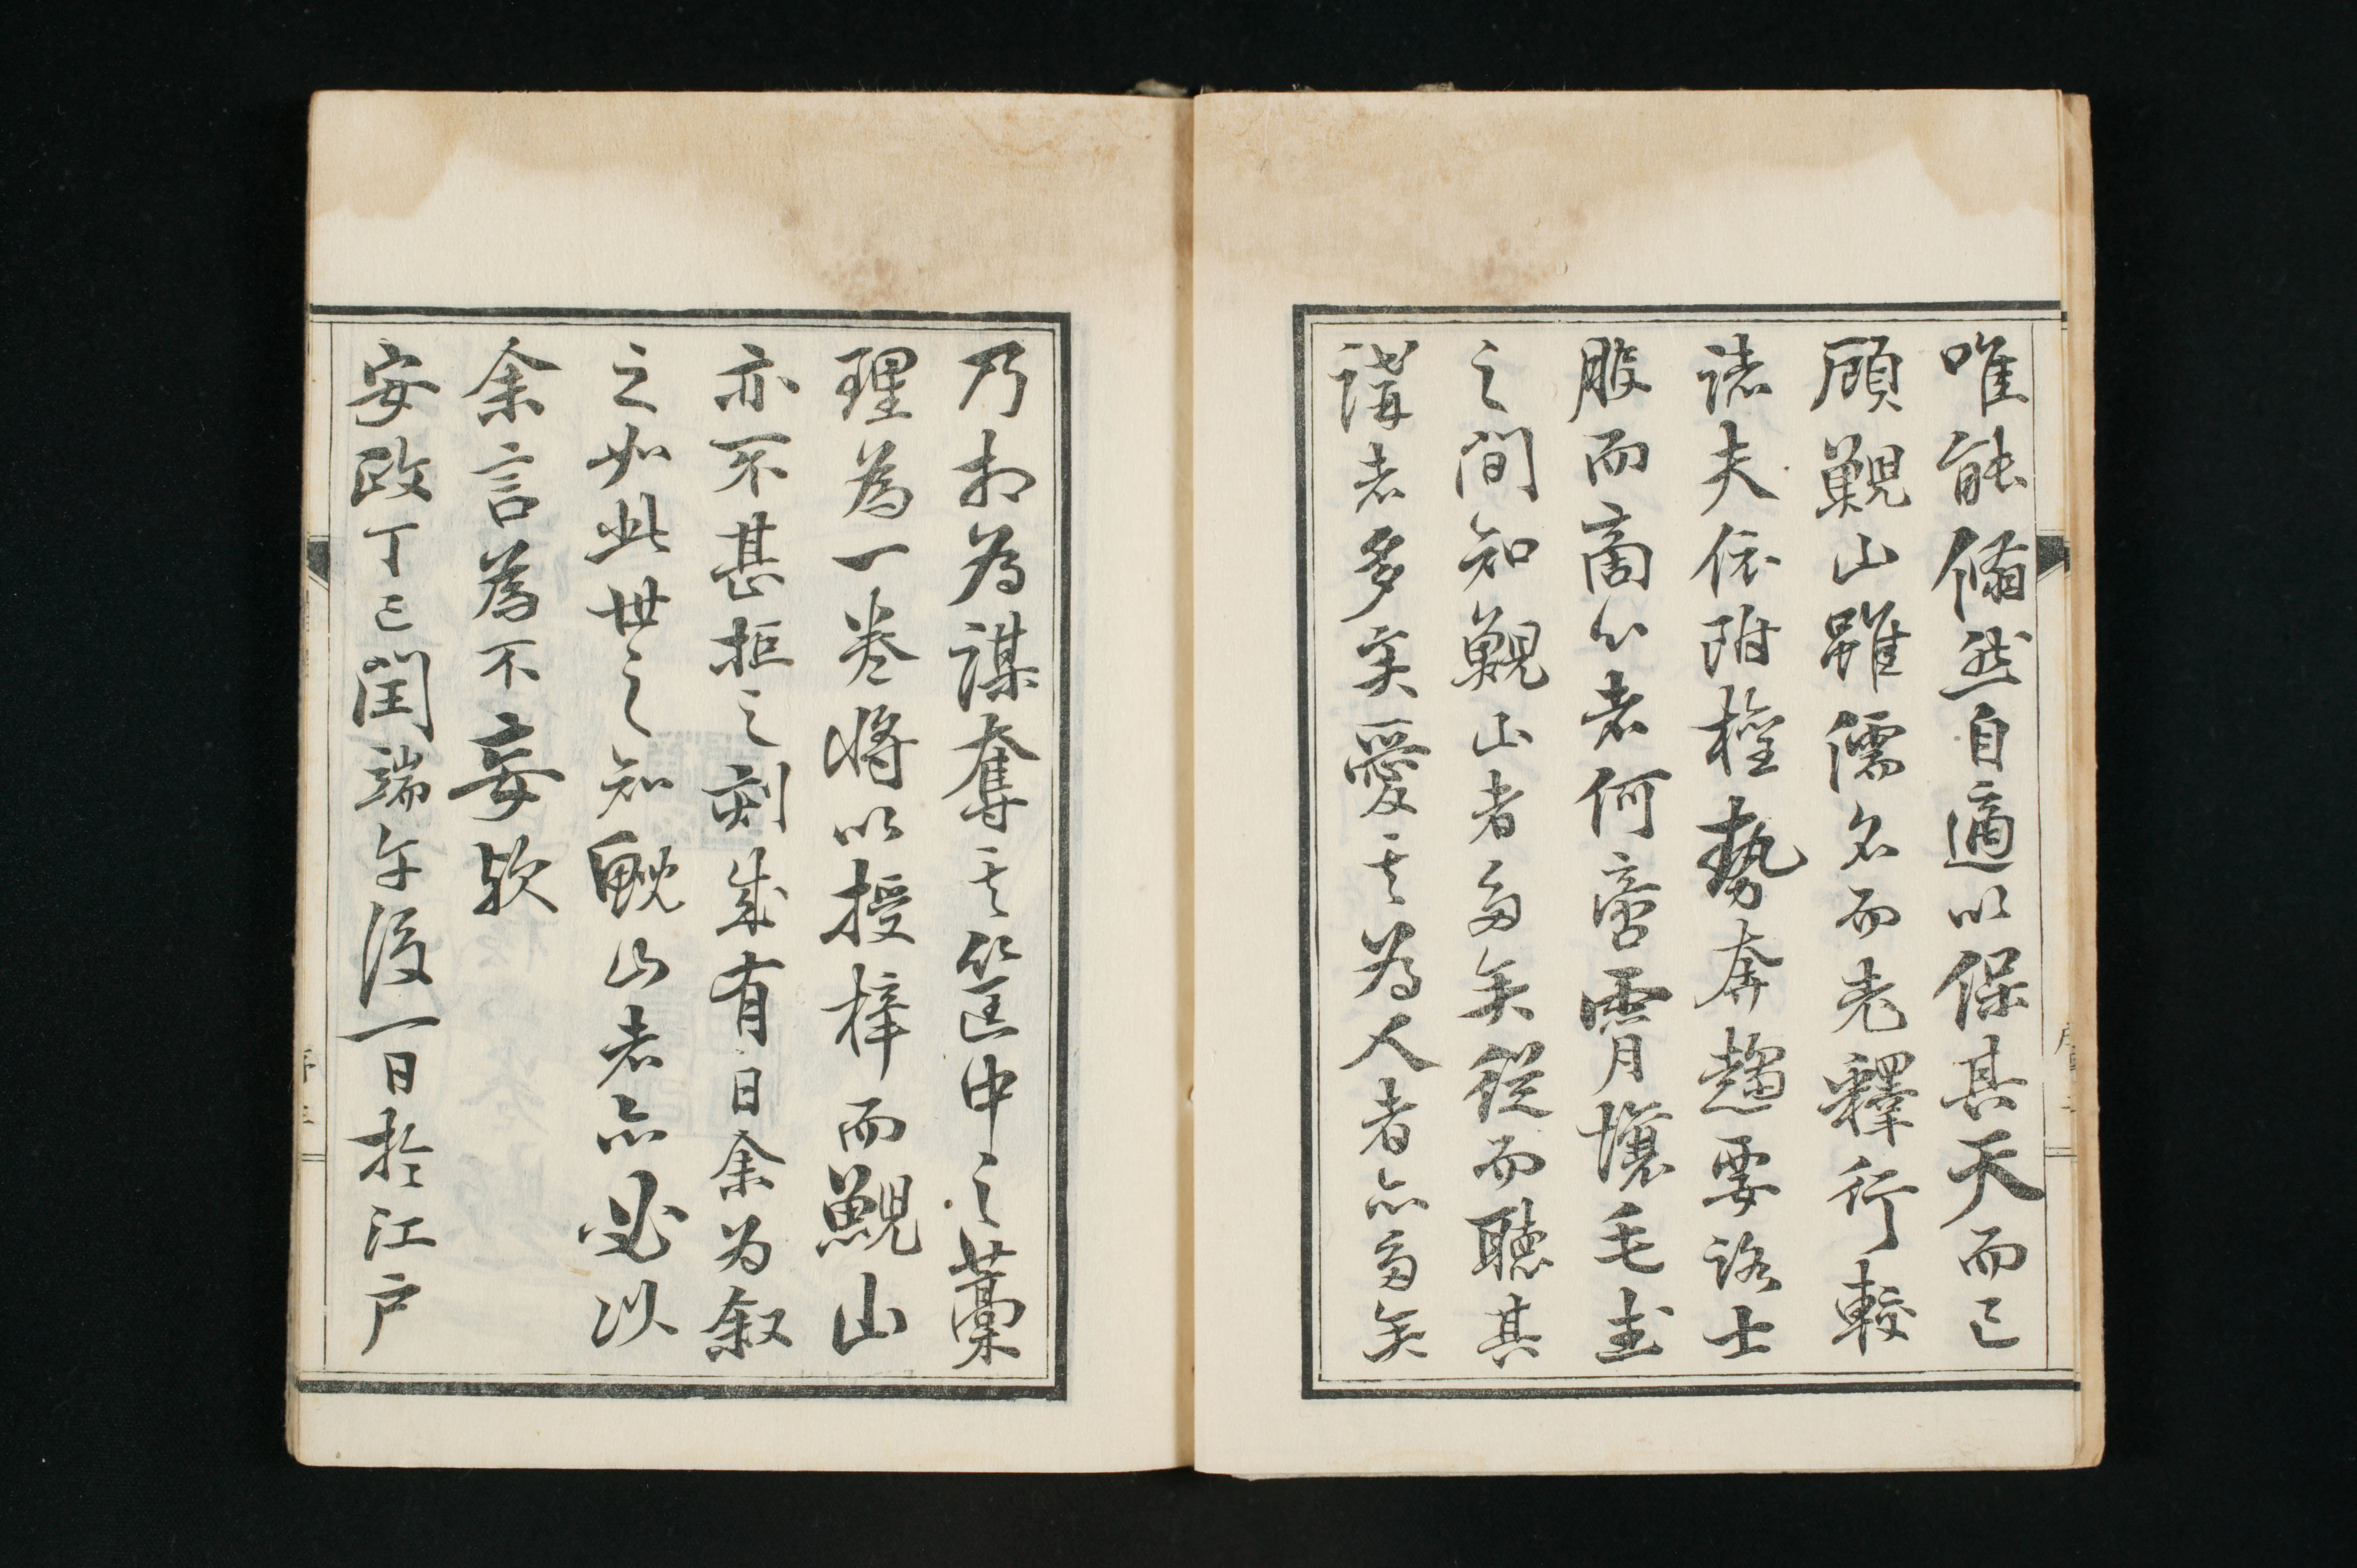 唯能翛然自適以保其天而已
顧鷃山雖儒名而老釋行較
諸夫依附權勢奔趨要路士
服而商心者何啻霄壤毛主
之間知鷃山者多矣從而聽其
講者多矣愛其為人者亦多矣
乃相為謀奪其筐中之藁
理為一卷將以授梓而山
亦不甚拒之刻成有日余為叙
之如此世之知山者亦必以
余言為不妄欤
安政丁巳閏端午後一日於江戸